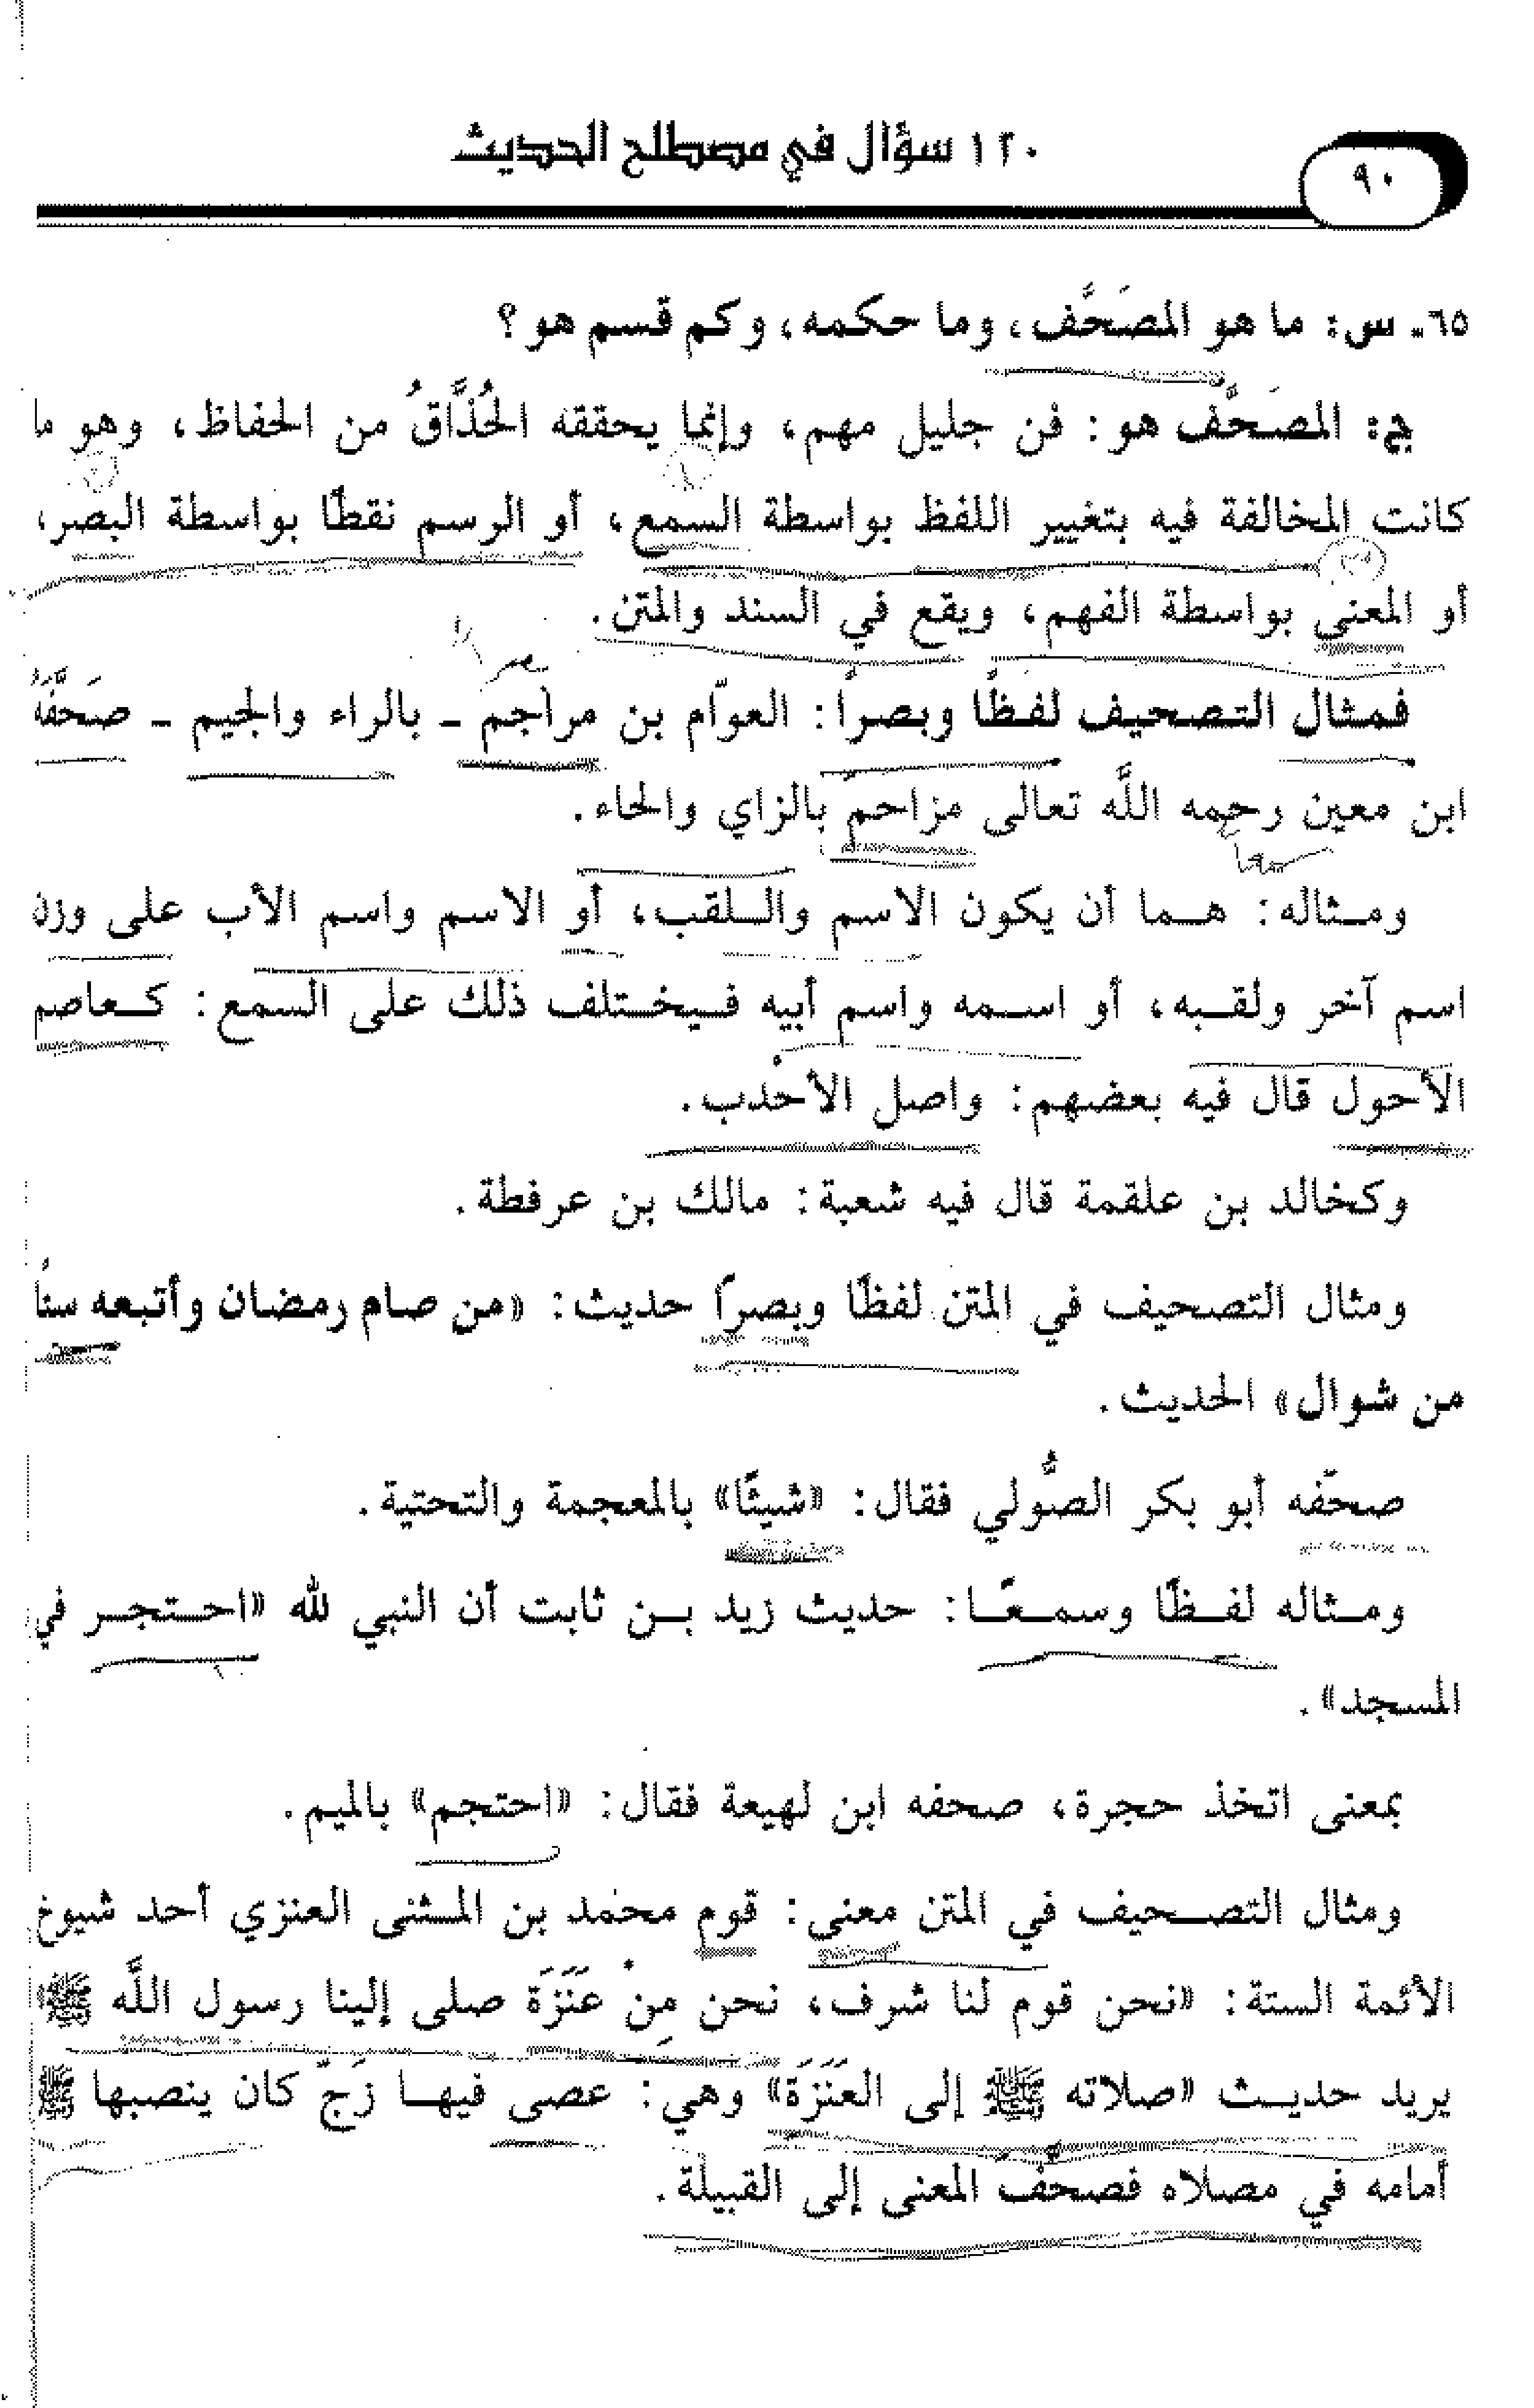 ١٢٠ سؤال في مصطلح الحديث
٩٠
٦٥ـ س: ما هو المصَحَّف، وما حكمه، وكم قسم هو؟
ج: المصَحَّف هو: فن جليل مهم، وإنما يحققه الحُذَّاقُ من الحفاظ، وهو ما
كانت المخالفة فيه بتغيير اللفظ بواسطة السمع، أو الرسم نقطًا بواسطة البصر،
أو المعنى بواسطة الفهم، ويقع في السند والمتن.
فمثال التصحيف لفظًا وبصراً: العوّام بن مراجم ـ بالراء والجيم ـ صَحَّفَهُ
ابن معين رحمه اللَّه تعالى مزاحم بالزاي والحاء.
ومثاله: هما أن يكون الاسم واللقب، أو الاسم واسم الأب على وزن
اسم آخر ولقبه، أو اسمه واسم أبيه فيختلف ذلك على السمع: كعاصم
الأحول قال فيه بعضهم: واصل الأحْدب.
وكخالد بن علقمة قال فيه شعبة: مالك بن عرفطة.
ومثال التصحيف في المتن لفظًا وبصرًا حديث: «من صام رمضان وأتبعه ستًا
من شوال» الحديث.
صحّفه أبو بكر الصُّولي فقال: «شيئًا» بالمعجمة والتحتية.
ومثاله لفظًا وسمعًا: حديث زيد بن ثابت أن النبي لله «احتجر في
المسجد».
بمعنى اتخذ حجرة، صحفه ابن لهيعة فقال: «احتجم» بالميم.
ومثال التصحيف في المتن معنى: قوم محمد بن المثنى العنزي أحد شيوخ
الأئمة الستة: «نحن قوم لنا شرف، نحن مِنْ عَنَزَة صلى إلينا رسول اللَّه ﷺ»
يريد حديث «صلاته ﷺ إلى العَنَزَة» وهي: عصى فيها زَجّ كان ينصبها ﷺ
أمامه في مصلاه فصحّف المعنى إلى القبيلة.